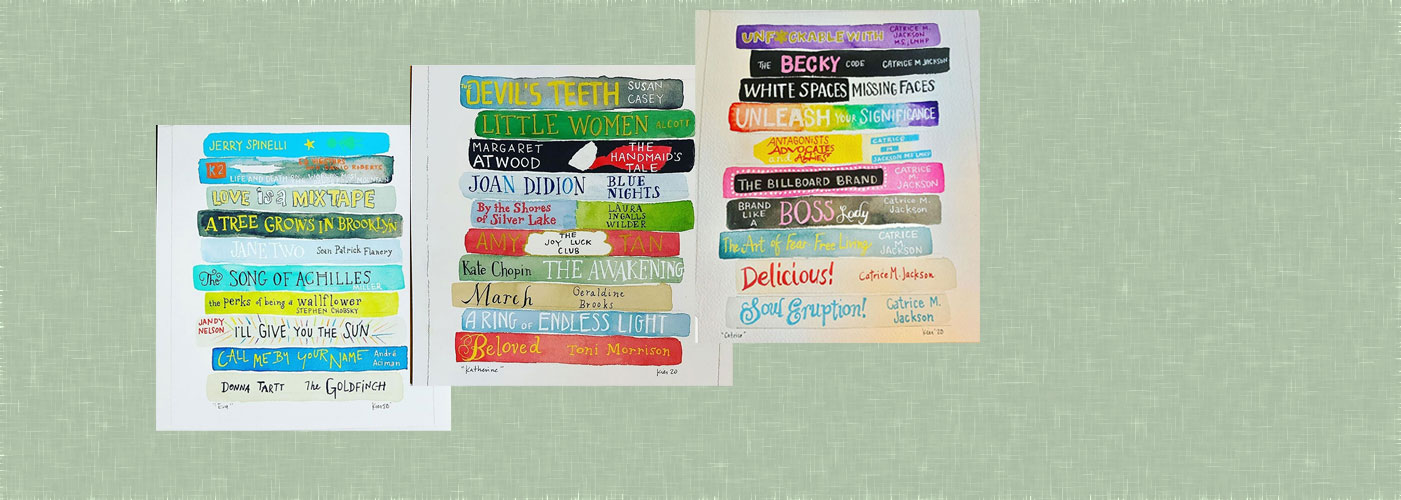 JERRY SPINELLI
K2
LIFE AND DEATH ON
MOUNTAIN
LOVE is a MIXTAPE
A TREE GROWS IN BROOKLYN
JANE TWO Sean Patrick Flanery
The SONG OF ACHILLES
MILLER
the perks of being a wallflower
STEPHEN CHBOSKY
JANDY
NELSON
I'LL GIVE YOU THE SUN
CALL ME BY YOUR NAME
André
Aciman
DONNA TARTT The GOLDFINCH
"Eva"
THE DEVIL'S TEETH
SUSAN
CASEY
LITTLE WOMEN ALCOTT
MARGARET
ATWOOD
THE
HANDMAID'S
TALE
JOAN DIDION
BLUE
NIGHTS
By the Shores
of Silver Lake
LAURA
INGALLS
WILDER
AMY TAN
THE
JOY LUCK
CLUB
Kate Chopin THE AWAKENING
March
Geraldine
Brooks
A RING OF ENDLESS LIGHT
Beloved Toni Morrison
"Katherine"
UNF*CKABLE WITH
CATRICE M.
JACKSON
MS, LMHP
THE BECKY CODE CATRICE M JACKSON
WHITE SPACES MISSING FACES
UNLEASH YOUR SIGNIFICANCE
ANTAGONISTS
ADVOCATES
and ALLIES
CATRICE
M
JACKSON MS LMHP
THE BILLBOARD BRAND
CATRICE
M.
JACKSON
BRAND
LIKE
A
BOSS Lady
Catrice M.
Jackson
The Art of Fear-Free Living
CATRICE
M.
JACKSON
Delicious! Catrice M. Jackson
Soul Eruption!
Catrice M.
Jackson
"Catrice"